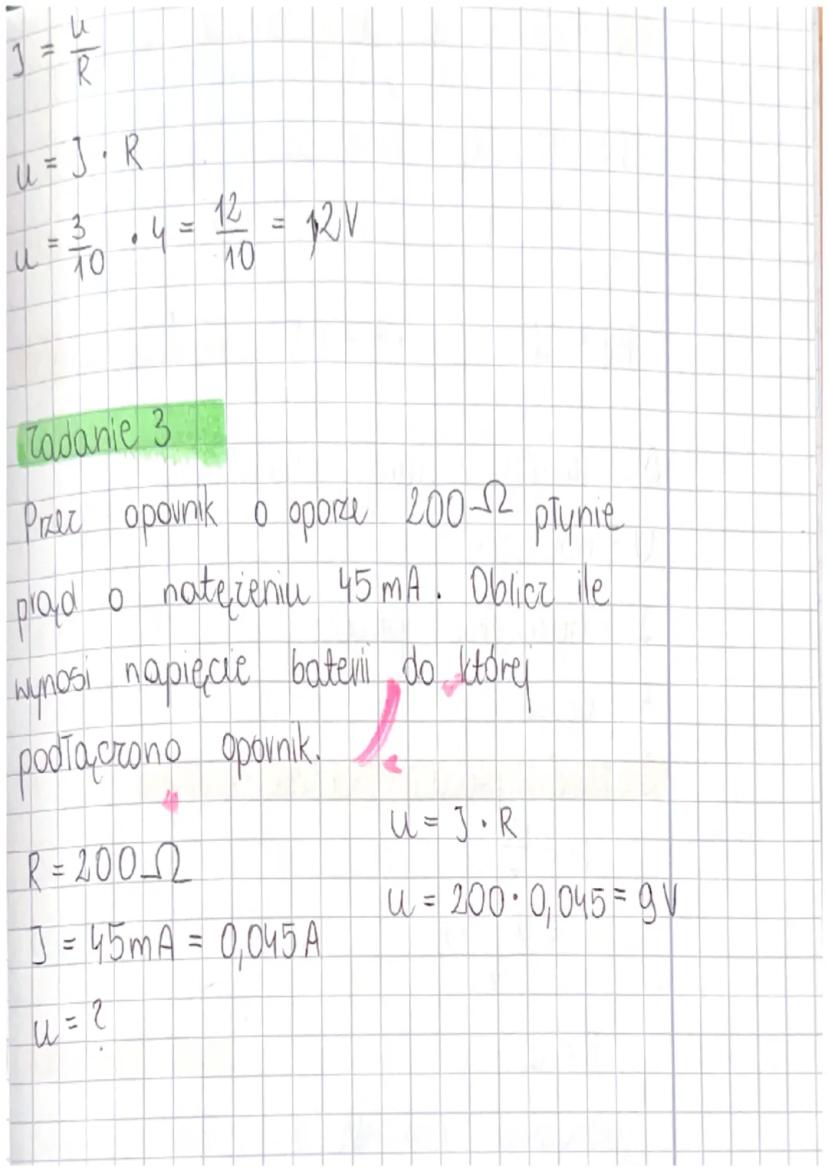 J = U/R
U = J · R
U = 3/10 · 4 = 12/10 = 1,2V
Zadanie 3
Przez opornik o oporze 200 Ω płynie
prąd o natężeniu 45 mA. Oblicz ile
wynosi napięcie baterii do której
podłączono opornik.
U = J · R
R = 200 Ω
U = 200 · 0,045 = 9V
J = 45mA = 0,045A
U = ?